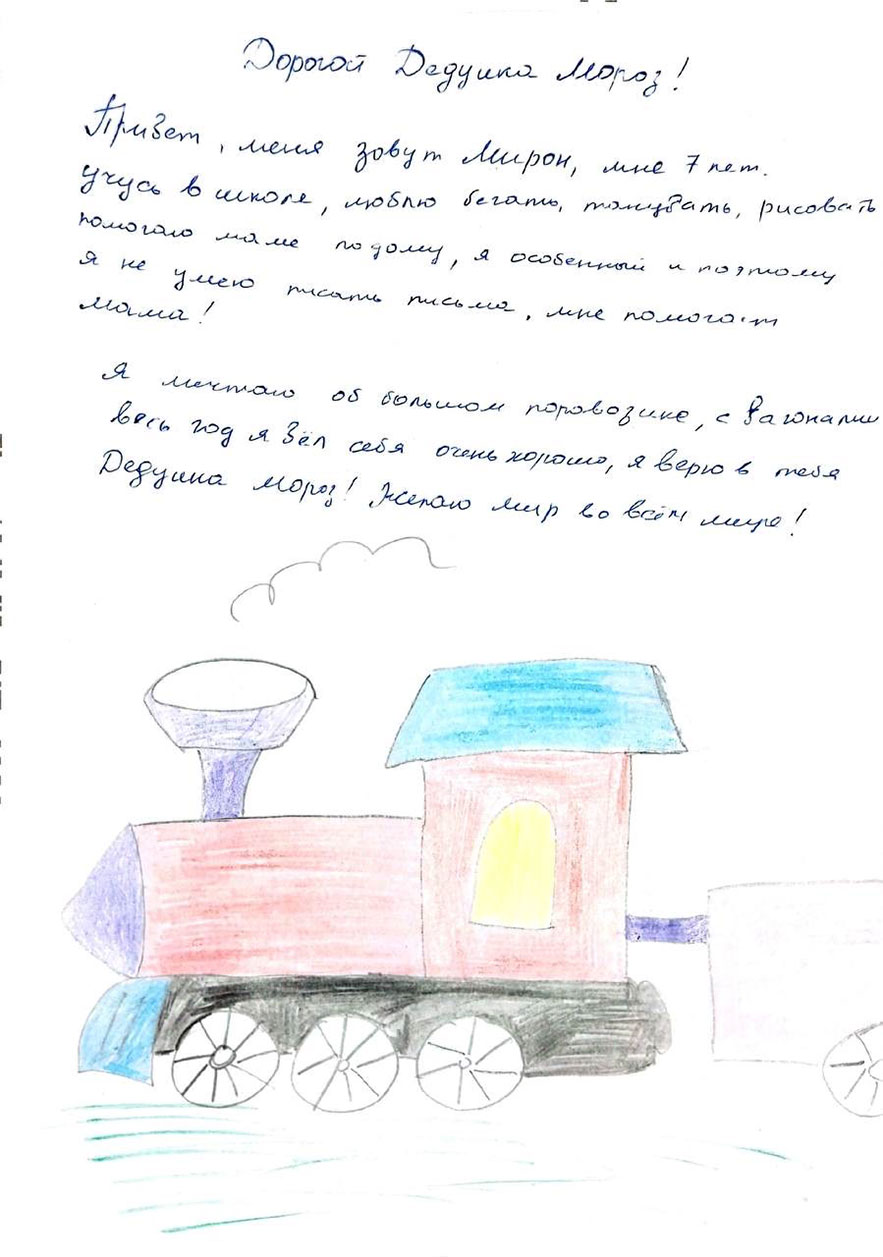 Дорогой Дедушка Мороз!
Привет, меня зовут Мирон, мне 7 лет.
Учусь в школе, люблю бегать, танцевать, рисовать
помогаю маме по дому, я особенный и поэтому
я не умею писать письма, мне помогает
мама!
Я мечтаю об большом поровозике, с вагонами
весь год я вёл себя очень хорошо, я верю в тебя
Дедушка Мороз! Желаю мир во всём мире!